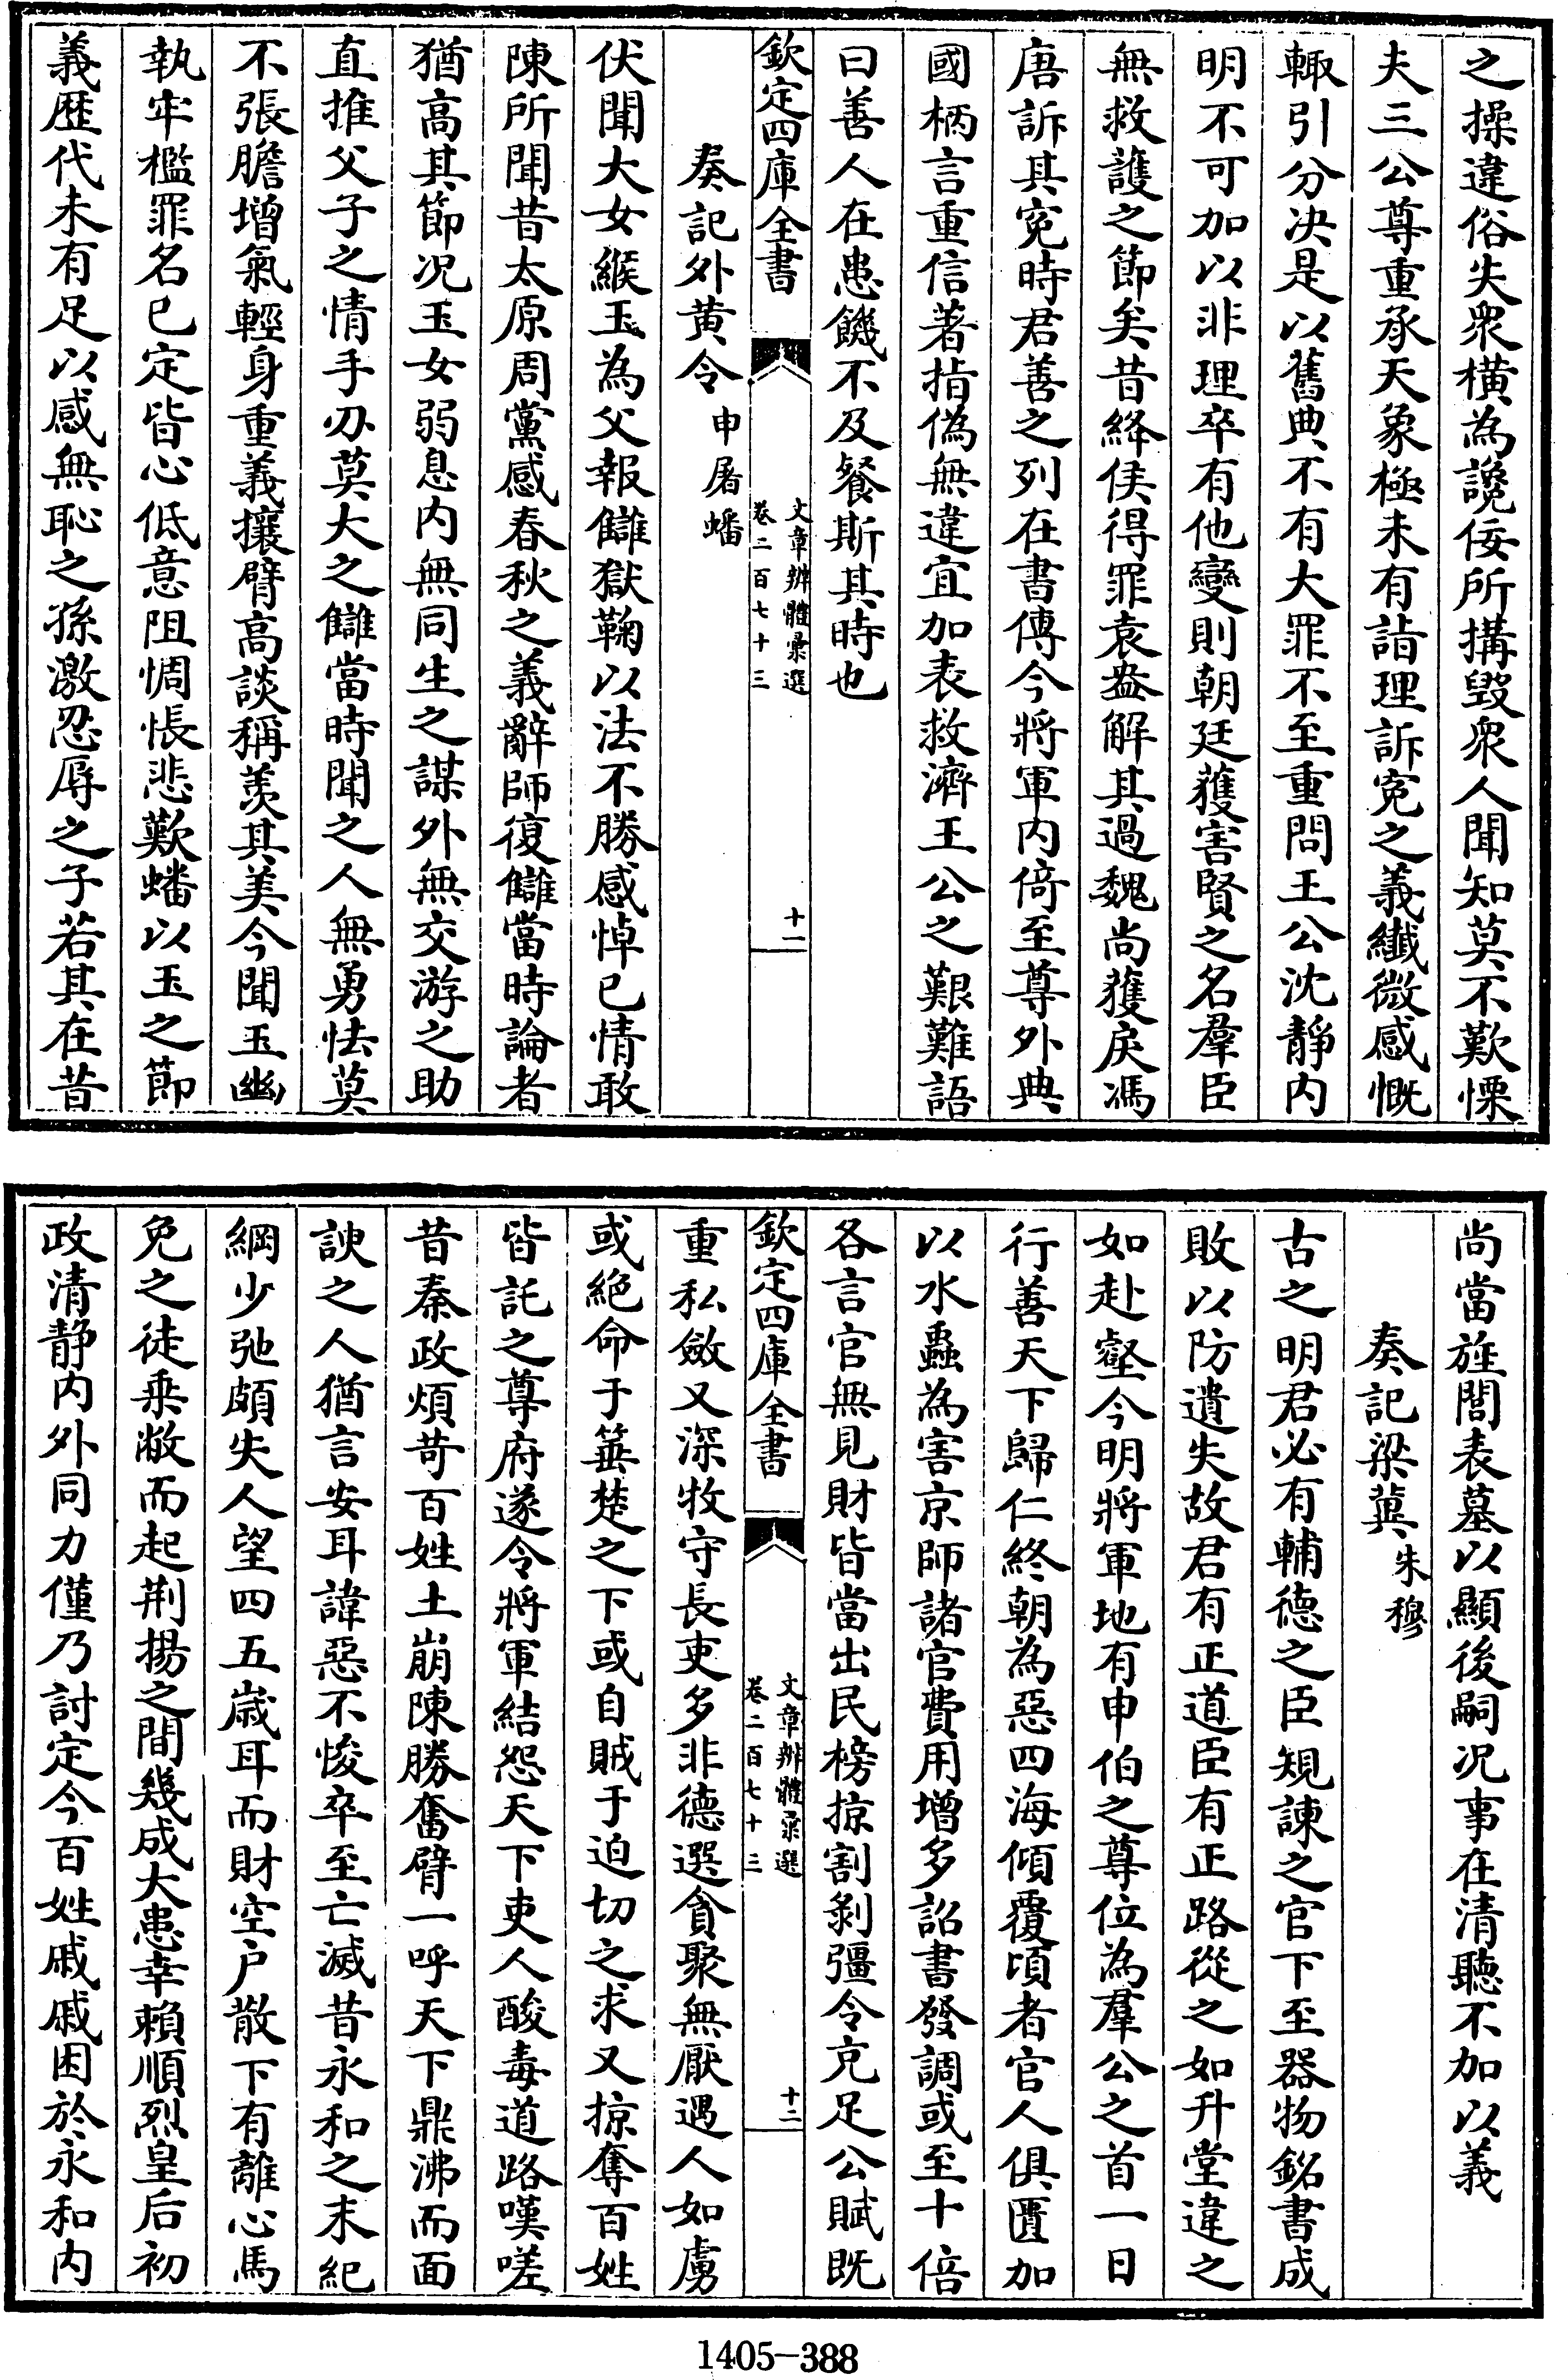 之操違俗失衆橫為讒佞所搆毀衆人聞知莫不歎慄
夫三公尊重承天象極未有詣理訴寃之義纖微感慨
輙引分决是以舊典不有大罪不至重問王公沈靜内
明不可加以非理卒有他變則朝廷獲害賢之名羣臣
無救護之節矣昔絳侯得罪袁盎解其過魏尚獲戾馮
唐訴其寃時君善之列在書傳今將軍内倚至尊外典
國柄言重信著指偽無違宜加表救濟王公之艱難語
曰善人在患饑不及餐斯其時也
欽定四庫全書
文章辨體彚選
卷二百七十三
十一
奏記外黄令 申屠蟠
伏聞大女緱玉為父報讎獄鞠以法不勝感悼已情敢
陳所聞昔太原周黨感春秋之義辭師復讎當時論者
猶高其節况玉女弱息内無同生之謀外無交游之助
直推父子之情手刃莫大之讎當時聞之人無勇怯莫
不張膽增氣輕身重義攘臂高談稱羨其美今聞玉幽
執牢檻罪名已定皆心低意阻惆悵悲歎蟠以玉之節
義歴代未有足以感無恥之孫激忍辱之子若其在昔
尚當旌閭表墓以顯後嗣况事在清聽不加以義
奏記梁冀 朱穆
古之明君必有輔德之臣規諌之官下至器物銘書成
敗以防遺失故君有正道臣有正路從之如升堂違之
如赴壑今明將軍地有申伯之尊位為羣公之首一日
行善天下歸仁終朝為惡四海傾覆頃者官人俱匱加
以水蟲為害京師諸官費用增多詔書發調或至十倍
各言官無見財皆當出民榜掠割剥彊令充足公賦既
欽定四庫全書
文章辨體彚選
卷二百七十三
十二
重私斂又深牧守長吏多非德選貪聚無厭遇人如虜
或絶命于箠楚之下或自賊于迫切之求又掠奪百姓
皆託之尊府遂令將軍結怨天下吏人酸毒道路嘆嗟
昔秦政煩苛百姓土崩陳勝奮臂一呼天下鼎沸而面
諛之人猶言安耳諱惡不悛卒至亡滅昔永和之末紀
綱少弛頗失人望四五嵗耳而財空户散下有離心馬
免之徒乘敝而起荆揚之間幾成大患幸賴順烈皇后初
政清静内外同力僅乃討定今百姓戚戚困於永和内
1405-388